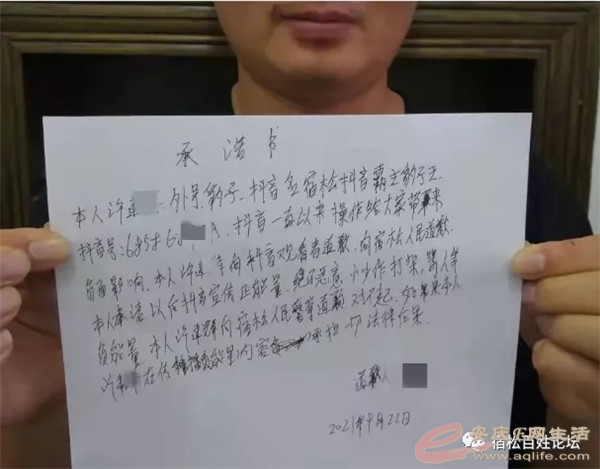 承浩书
本人许建 外号豹子、抖音名宿松抖音霸主豹子王、
抖音号:685 A、抖音一直以来操作给大家带来
负面影响、本人许 向抖音观看者道歉、向宿松人民道歉、
本人承诺以后抖音宣传正能量、绝不恶意炒作打架、骂人等
负能量、本人许 向宿松人民警察道歉 对不起、如果本人
许 在传播负能量内容 承担一切法律后果、
道歉人
2021年9月22日
宿松百姓论坛
e安庆E网生活
www.aqlife.com